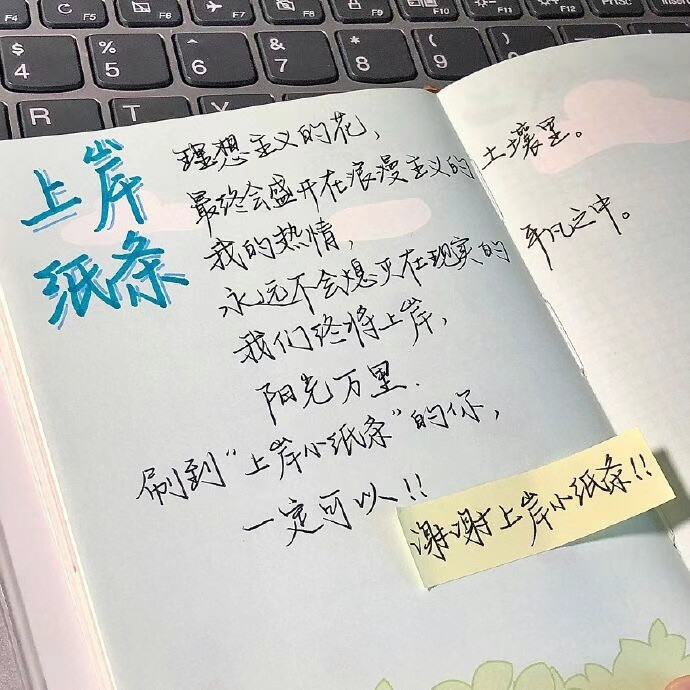 F4 F5 F6 F7 F8 F9 F10 F11 F12 PrtSc Insert
$ % ^ & * (
4 5 6 7 8 9
R T
上岸
纸条
理想主义的花，
最终会盛开在浪漫主义的土壤里。
我的热情，
永远不会熄灭在现实的平凡之中。
我们终将上岸，
阳光万里.
刷到“上岸小纸条”的你，
一定可以!!
谢谢上岸小纸条!!